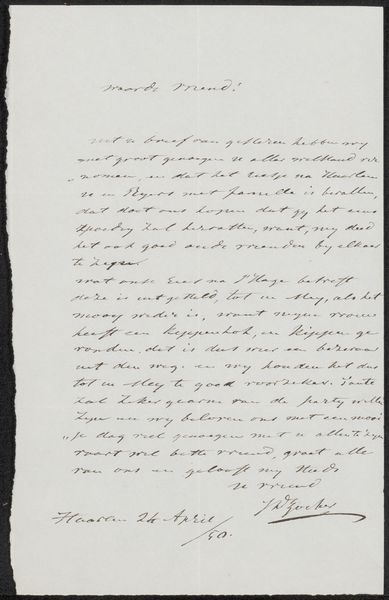 waarde vriend!
met u brief van gisteren hebben wy
met groot genoegen u alles welkand ver
nomen, en dat het reisje na Haarlem
u en Eyers met familie is bevallen,
dat doet ons hopen dat gy het eens
spoedig zal hervatten, want, my deed
het ook goed oude vrienden by elkaar
te zyn.
wat onze reis na S'Hage betreft
deze is uit gesteld, tot in Mey, als het
mooy weder is, want myn vrouw
heeft een kippenhok, en kippen ge
vonden, dit is dus weer een bezwaar
uit den weg. en wy houden het dus
tot in Mey te goed voorzeker. Tante
zal zeker gaarne van de party willen
zyn en wy beloven ons met een mooi
je dag veel genoegen met u allen te zyn
vaart wel beste vriend, groet alle
van ons en gelooft my steeds
u vriend
Haarlem 24 April
/50.